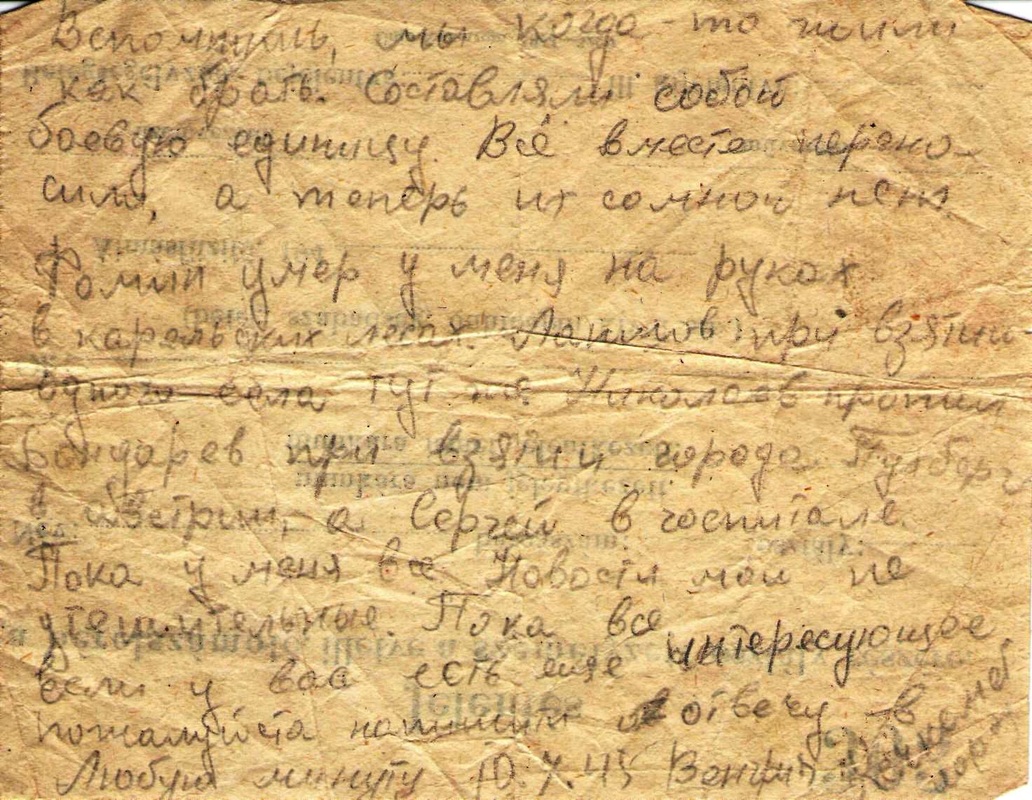 Вспомнишь, мы когда-то жили
как братья. Составляли собой
боевую единицу. Всё вместе перено-
сили, а теперь их со мной нет.
Фомин умер у меня на руках
в карельских лесах. при взятии
одного села тут же Николаев
Бондарев при взятии города
в Австрии, а Сергей в госпитале.
Пока у меня все Новости мои не
утешительные. Пока все
Если у вас есть еще интересующее
пожалуйста напишите отвечу в
Любую минуту 10.7.45 Венгрия